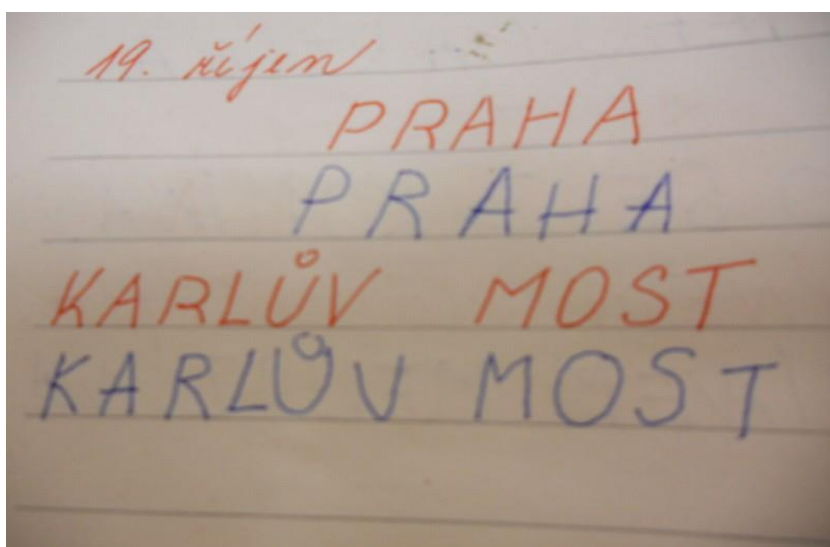 19. říjen
PRAHA
PRAHA
KARLŮV MOST
KARLŮV MOST